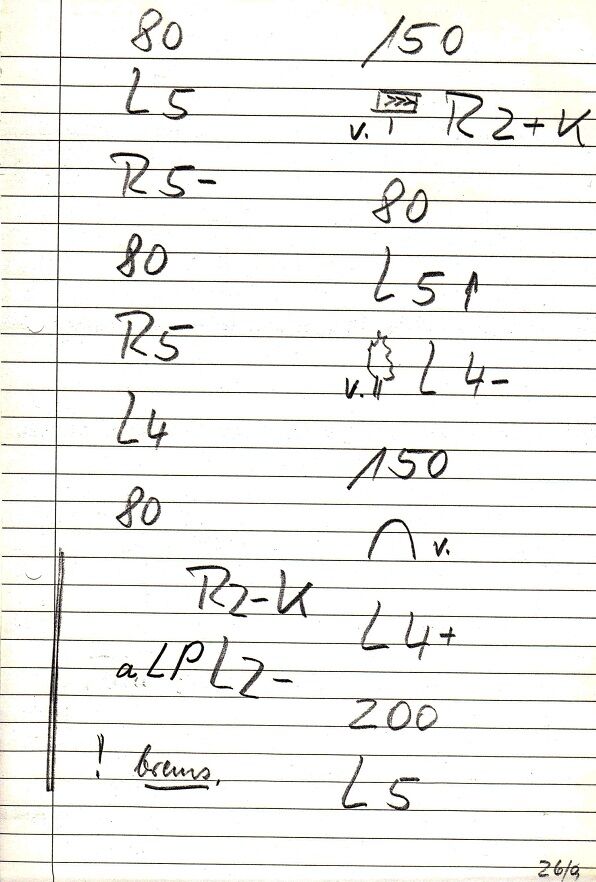 80
L 5
R 5-
80
R5
L4
80
R2-K
a. LP L2-
! brems.
150
v. R 2+K
80
L 5 ↑
v. L 4-
150
v.
L 4+
200
L 5
26/a